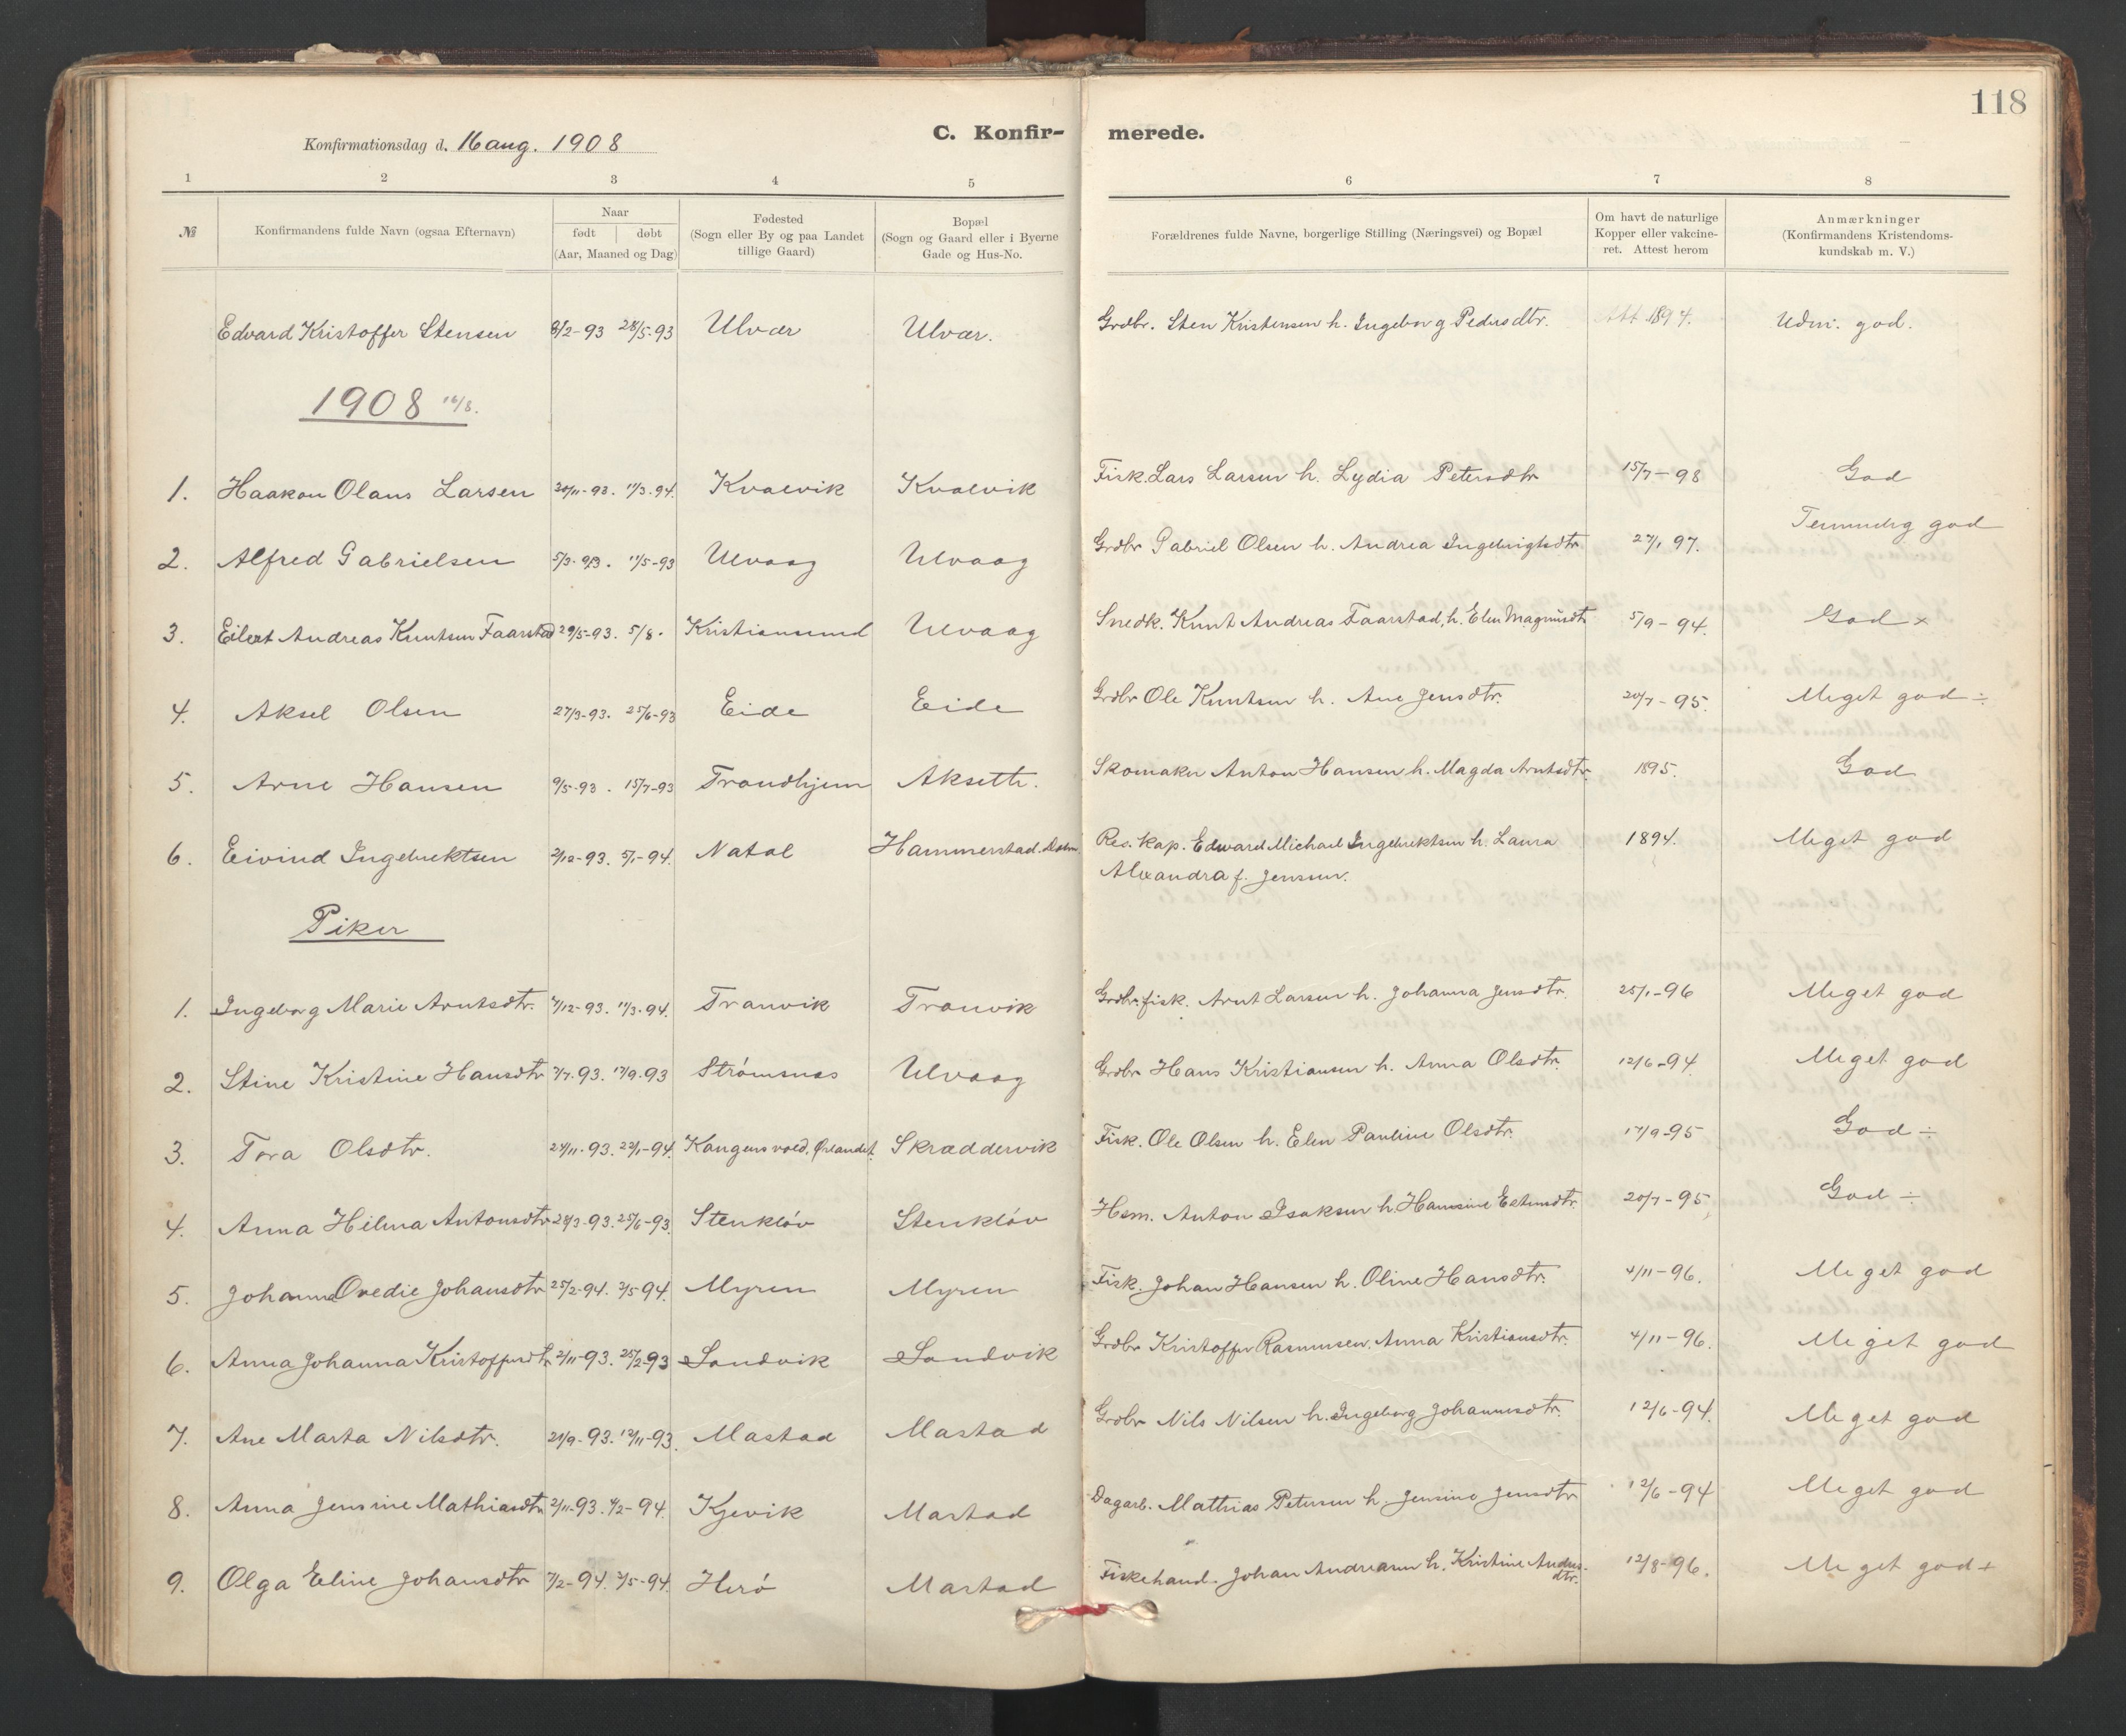 118
C. Konfir- merede.
Konfirmationsdag d. 16 aug. 1908
1 2 3 4 5 6 7 8
№ Konfirmandens fulde Navn (ogsaa Efternavn) Naar født døbt (Aar, Maaned og Dag) Fødested (Sogn eller By og paa Landet tillige Gaard) Bopæl (Sogn og Gaard eller i Byerne Gade og Hus-No. Forældrenes fulde Navne, borgerlige Stilling (Næringsvei) og Bopæl Om havt de naturlige Kopper eller vakcineret. Attest herom Anmærkninger (Konfirmandens Kristendomskundskab m. V.)
Edvard Kristoffer Stensen 8/2-93 28/5-93 Ulvær Ulvær. Grdbr. Sten Kristensen h. Ingeborg Pedersdtr. Att 1894. Udm. god.
1908 16/8.
1. Haakon Olaus Larsen 20/11-93. 11/3-94. Kvalvik Kvalvik Fisk. Lars Larsen h. Lydia Petersdtr 15/7-98 God
2. Alfred Gabrielsen 5/3-93. 11/5-93 Ulvaag Ulvaag Grdbr Gabriel Olsen h. Andrea Ingebrigtsdtr 27/1 97. Temmelig god
3. Eilert Andreas Knutsen Faarstad 29/5-93. 5/8. Kristiansund Ulvaag Snedk. Knut Andreas Faarstad, h. Elen Magnusdtr 5/9-94. God ×
4. Aksel Olsen 27/3-93. 25/6-93 Eide Eide Grdbr Ole Knutsen h. Ane Jensdtr. 20/7-95. Meget god ÷
5. Arne Hansen 9/5-93. 15/7-93 Trondhjem Akseth. Skomaker Anton Hansen h. Magda Arntsdtr. 1895. God
6. Eivind Ingebrektsen 2/12-93. 5/1-94. Natal Hammerstad. Res. Kap. Edward Michael Ingebrektsen h. Laura 1894. Meget god
Alexandra f. Jensen.
Piker
1. Ingeborg Marie Arntsdtr. 7/12-93. 11/3-94. Tranvik Tranvik Grdbr. fisk. Arnt Larsen h. Johanna Jensdtr. 25/1-96 Meget god
2. Stine Kristine Hansdtr 7/7.93. 17/9.93 Strømsnes Ulvaag Grdbr Hans Kristiansen h. Anna Olsdtr. 12/6-94. Meget god
3. Tora Olsdtr. 24/11-93. 22/1-94. Ørlandet. Skræddervik Fisk. Ole Olsen h. Elen Pauline Olsdtr. 17/9-95 God ÷
4. Anna Hilma Antonsdtr 28/3-93. 25/6-93. Stenkløv Stenkløv Hsm. Anton Isaksen h. Hansine 20/7-95 God ÷
5. Johanna Ovedie Johansdtr 25/2-94. 3/5-94. Myren Myren Fisk. Johan Hansen h. Oline Hansdtr. 4/11-96. Meget god
6. Anna Johanna Kristoffersdtr 2/11-93. 25/2-93 Sandvik Sandvik Grdbr Kristoffer Rasmussen, Anna Kristiansdtr. 4/11-96. Meget god
7. Ane Marta Nilsdtr. 21/9-93. 12/11-93. Mastad Mastad Grdbr Nils Nilsen h. Ingeborg Johannesdtr. 12/6-94. Meget god
8. Anna Jensine Mathiasdtr 2/11-93. 4/2-94. Kjevik Mastad Dagarb. Matthias Petersen h. Jensine Jensdtr 12/6-94 Meget god
9. Olga Eline Johansdtr 7/2-94. 3/5-94. Herø Mastad Fiskehand. Johan Andreasen h. Kristine Andersdtr. 12/8-96. Meget god +